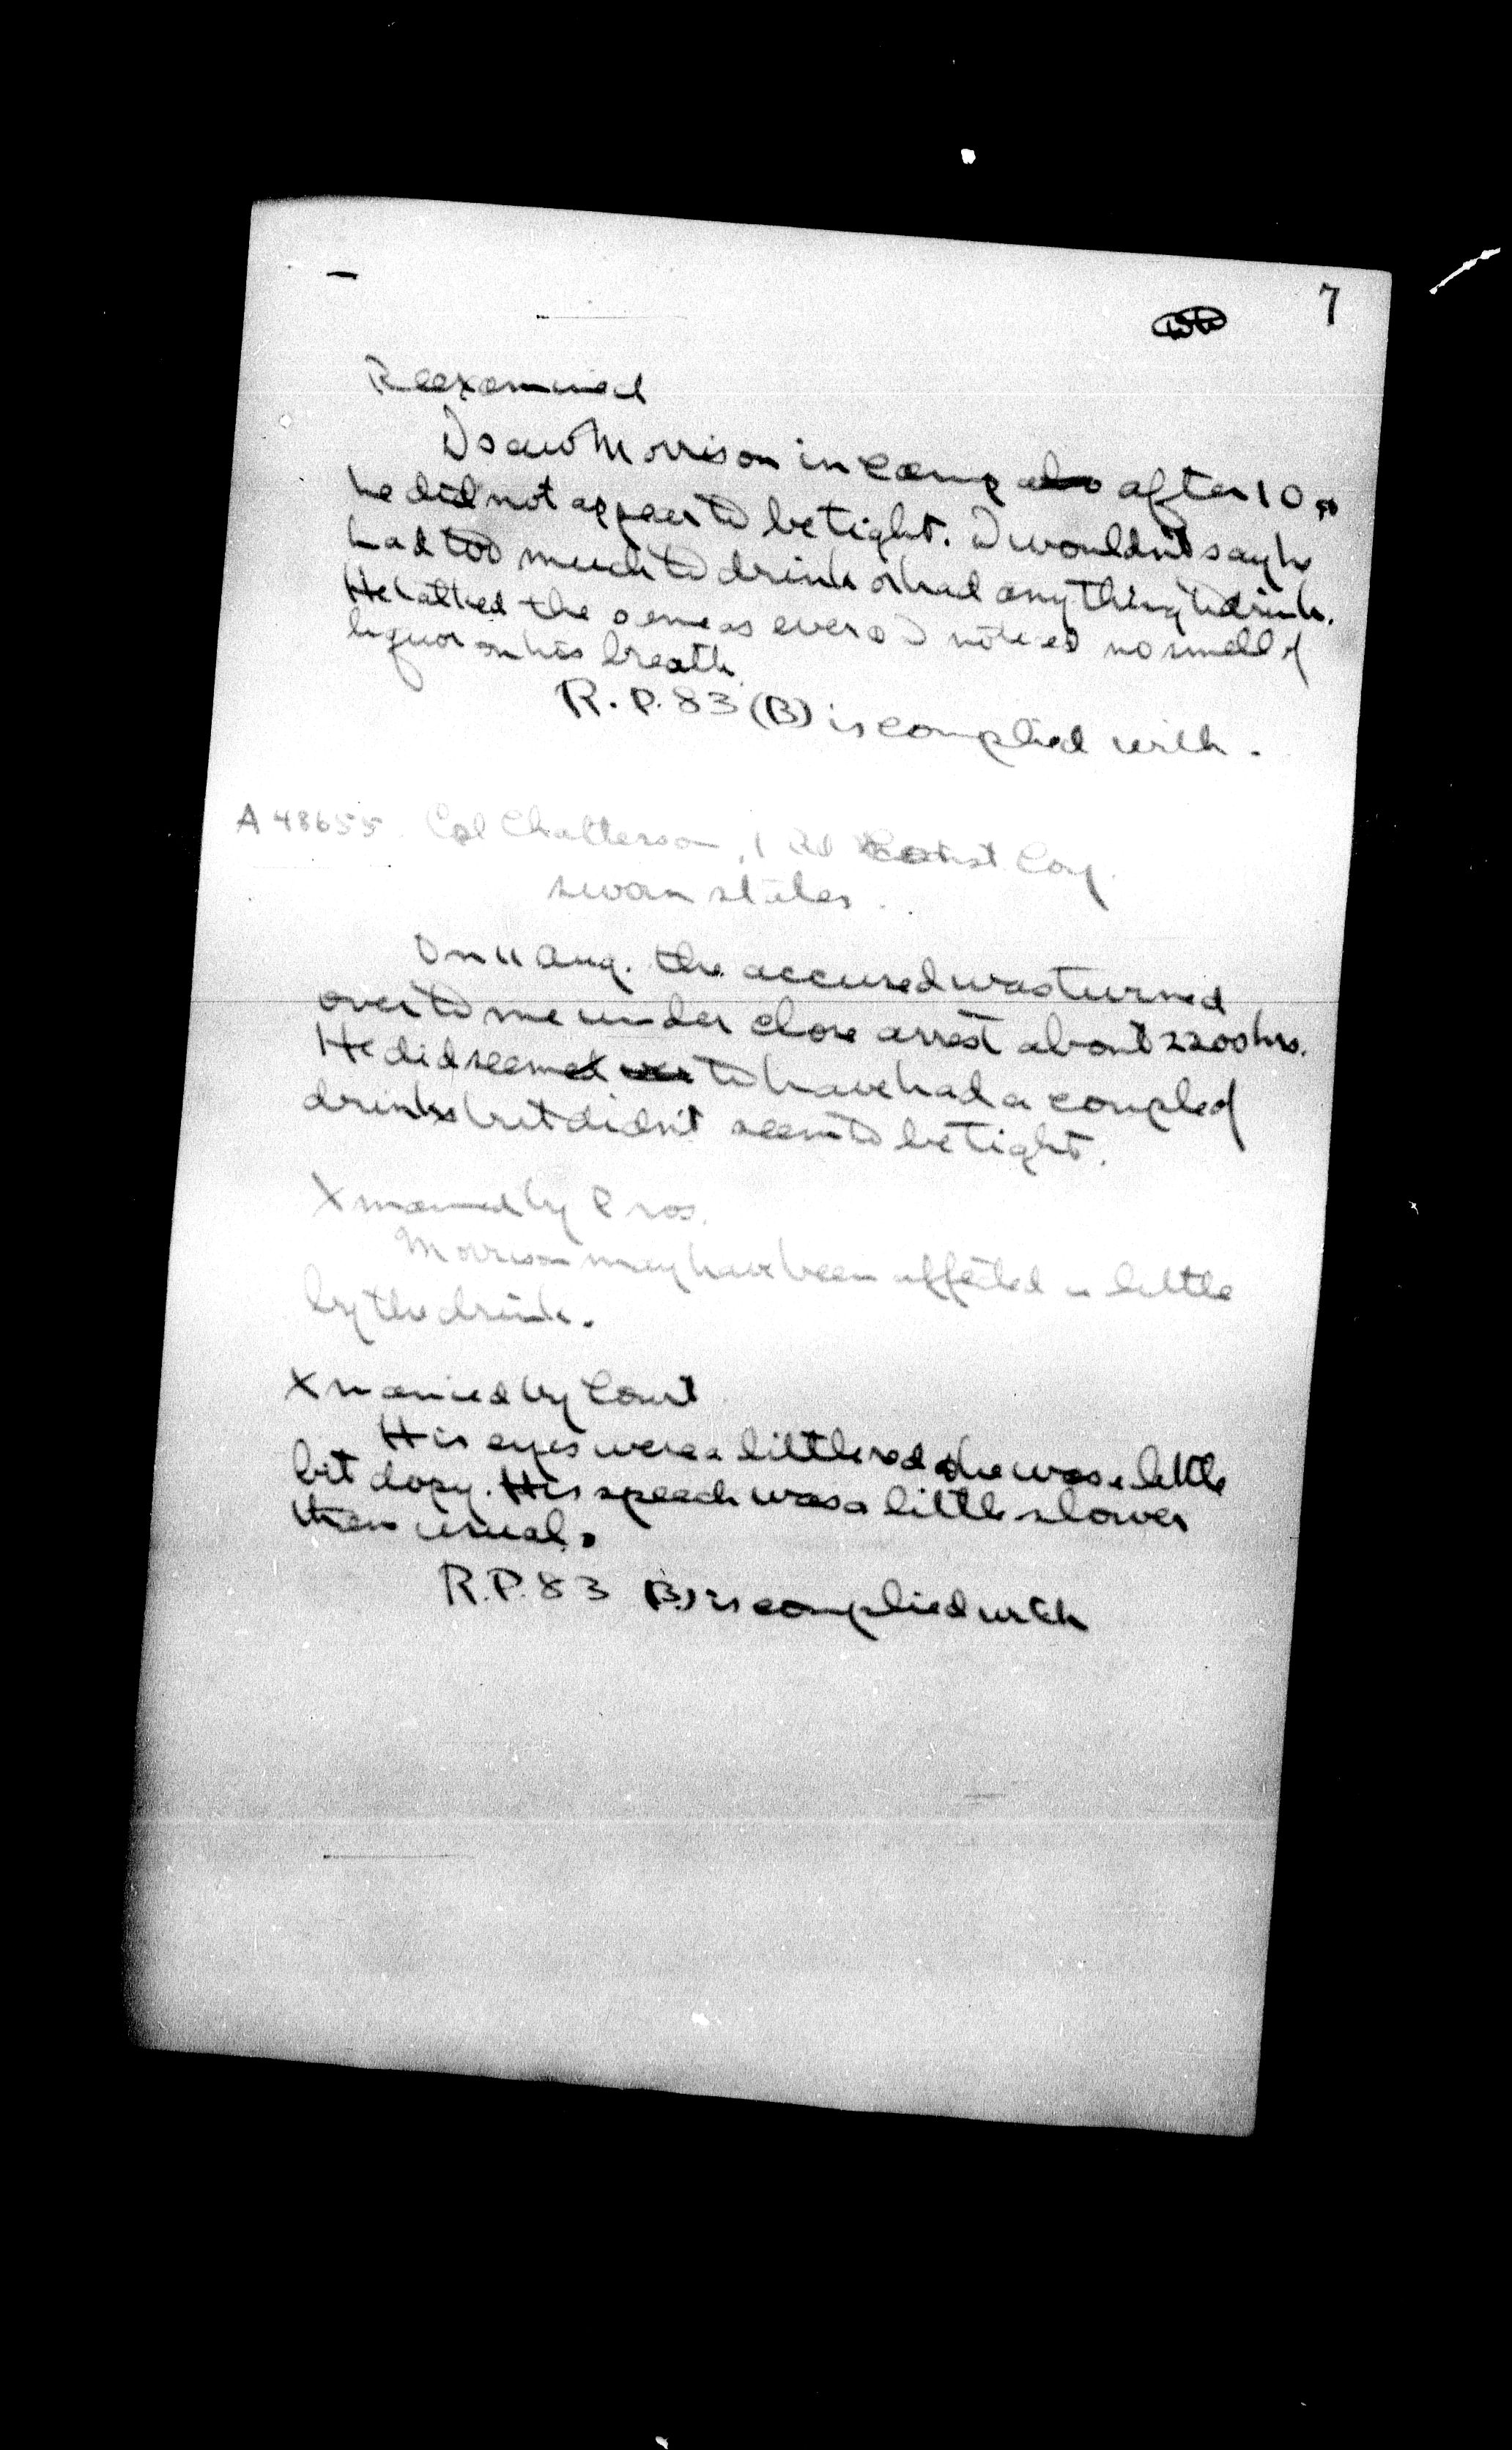 7
Reexamined
I saw Morrison in camp after 10 &
he did not appear to be tight. I wouldn't say he
had too much to drink or had anything to drink.
He talked the same as ever & I noticed no smell of
liquor on his breath.
R.P. 83 (B) is complied with.
A 48655 Cpl Chatterson, 1 Rd Const Coy.
sworn states.
On 11 Aug. the accused was turned
over to me under close arrest about 2200 hrs.
He did seem to have had a couple of
drinks but didn't seem to be tight.
Xmained by Pros.
Morrison may have been affected a little
by the drink.
Xmained by Court
His eyes were a little red & he was a little
bit dopy. His speech was a little slower
than usual.
R.P. 83 (B) is complied with